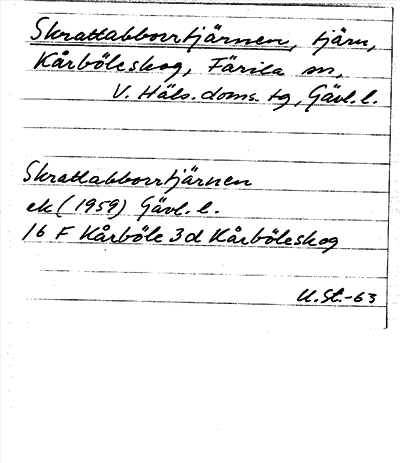 Skrattabborrtjärnen, tjärn,
Kårböleskog, Färila sn,
V. Häls. doms. tg, Gävl. l.
Skrattabborrtjärnen
ek (1959) Gävl. l.
16 F Kårböle 3d Kårböleskog
U. St. -63